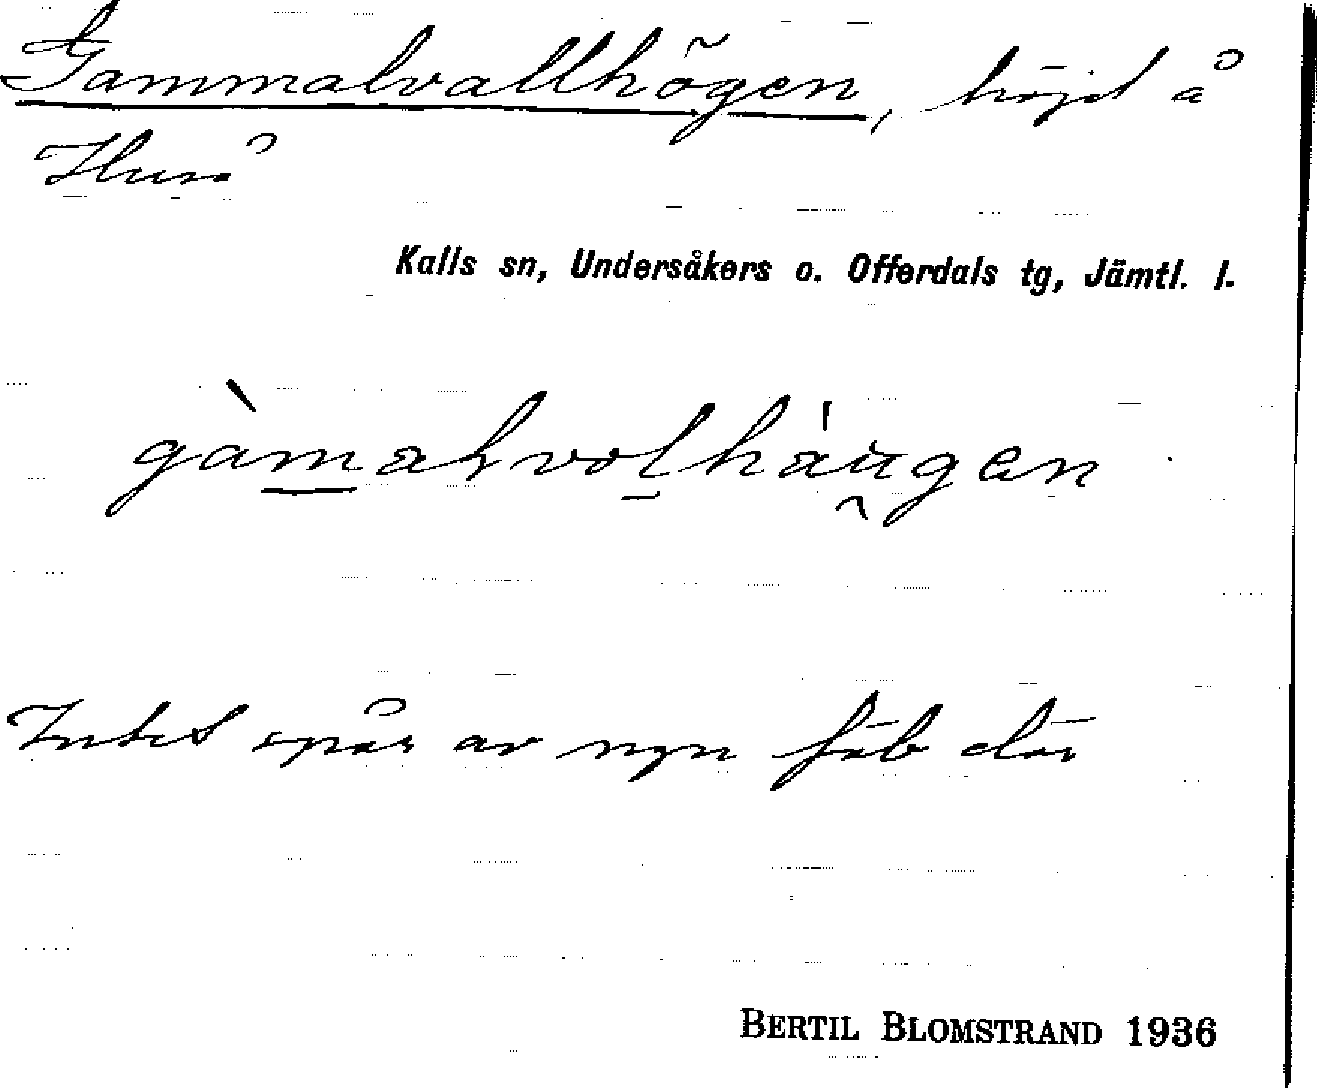 Gammalvallhögen, höjd å
Huså
Kalls sn, Undersåkers o. Offerdals tg, Jämtl. l.
gàmaḷvoḷháu̯gen
Intet spår av ngn fäb där
BERTIL BLOMSTRAND 1936